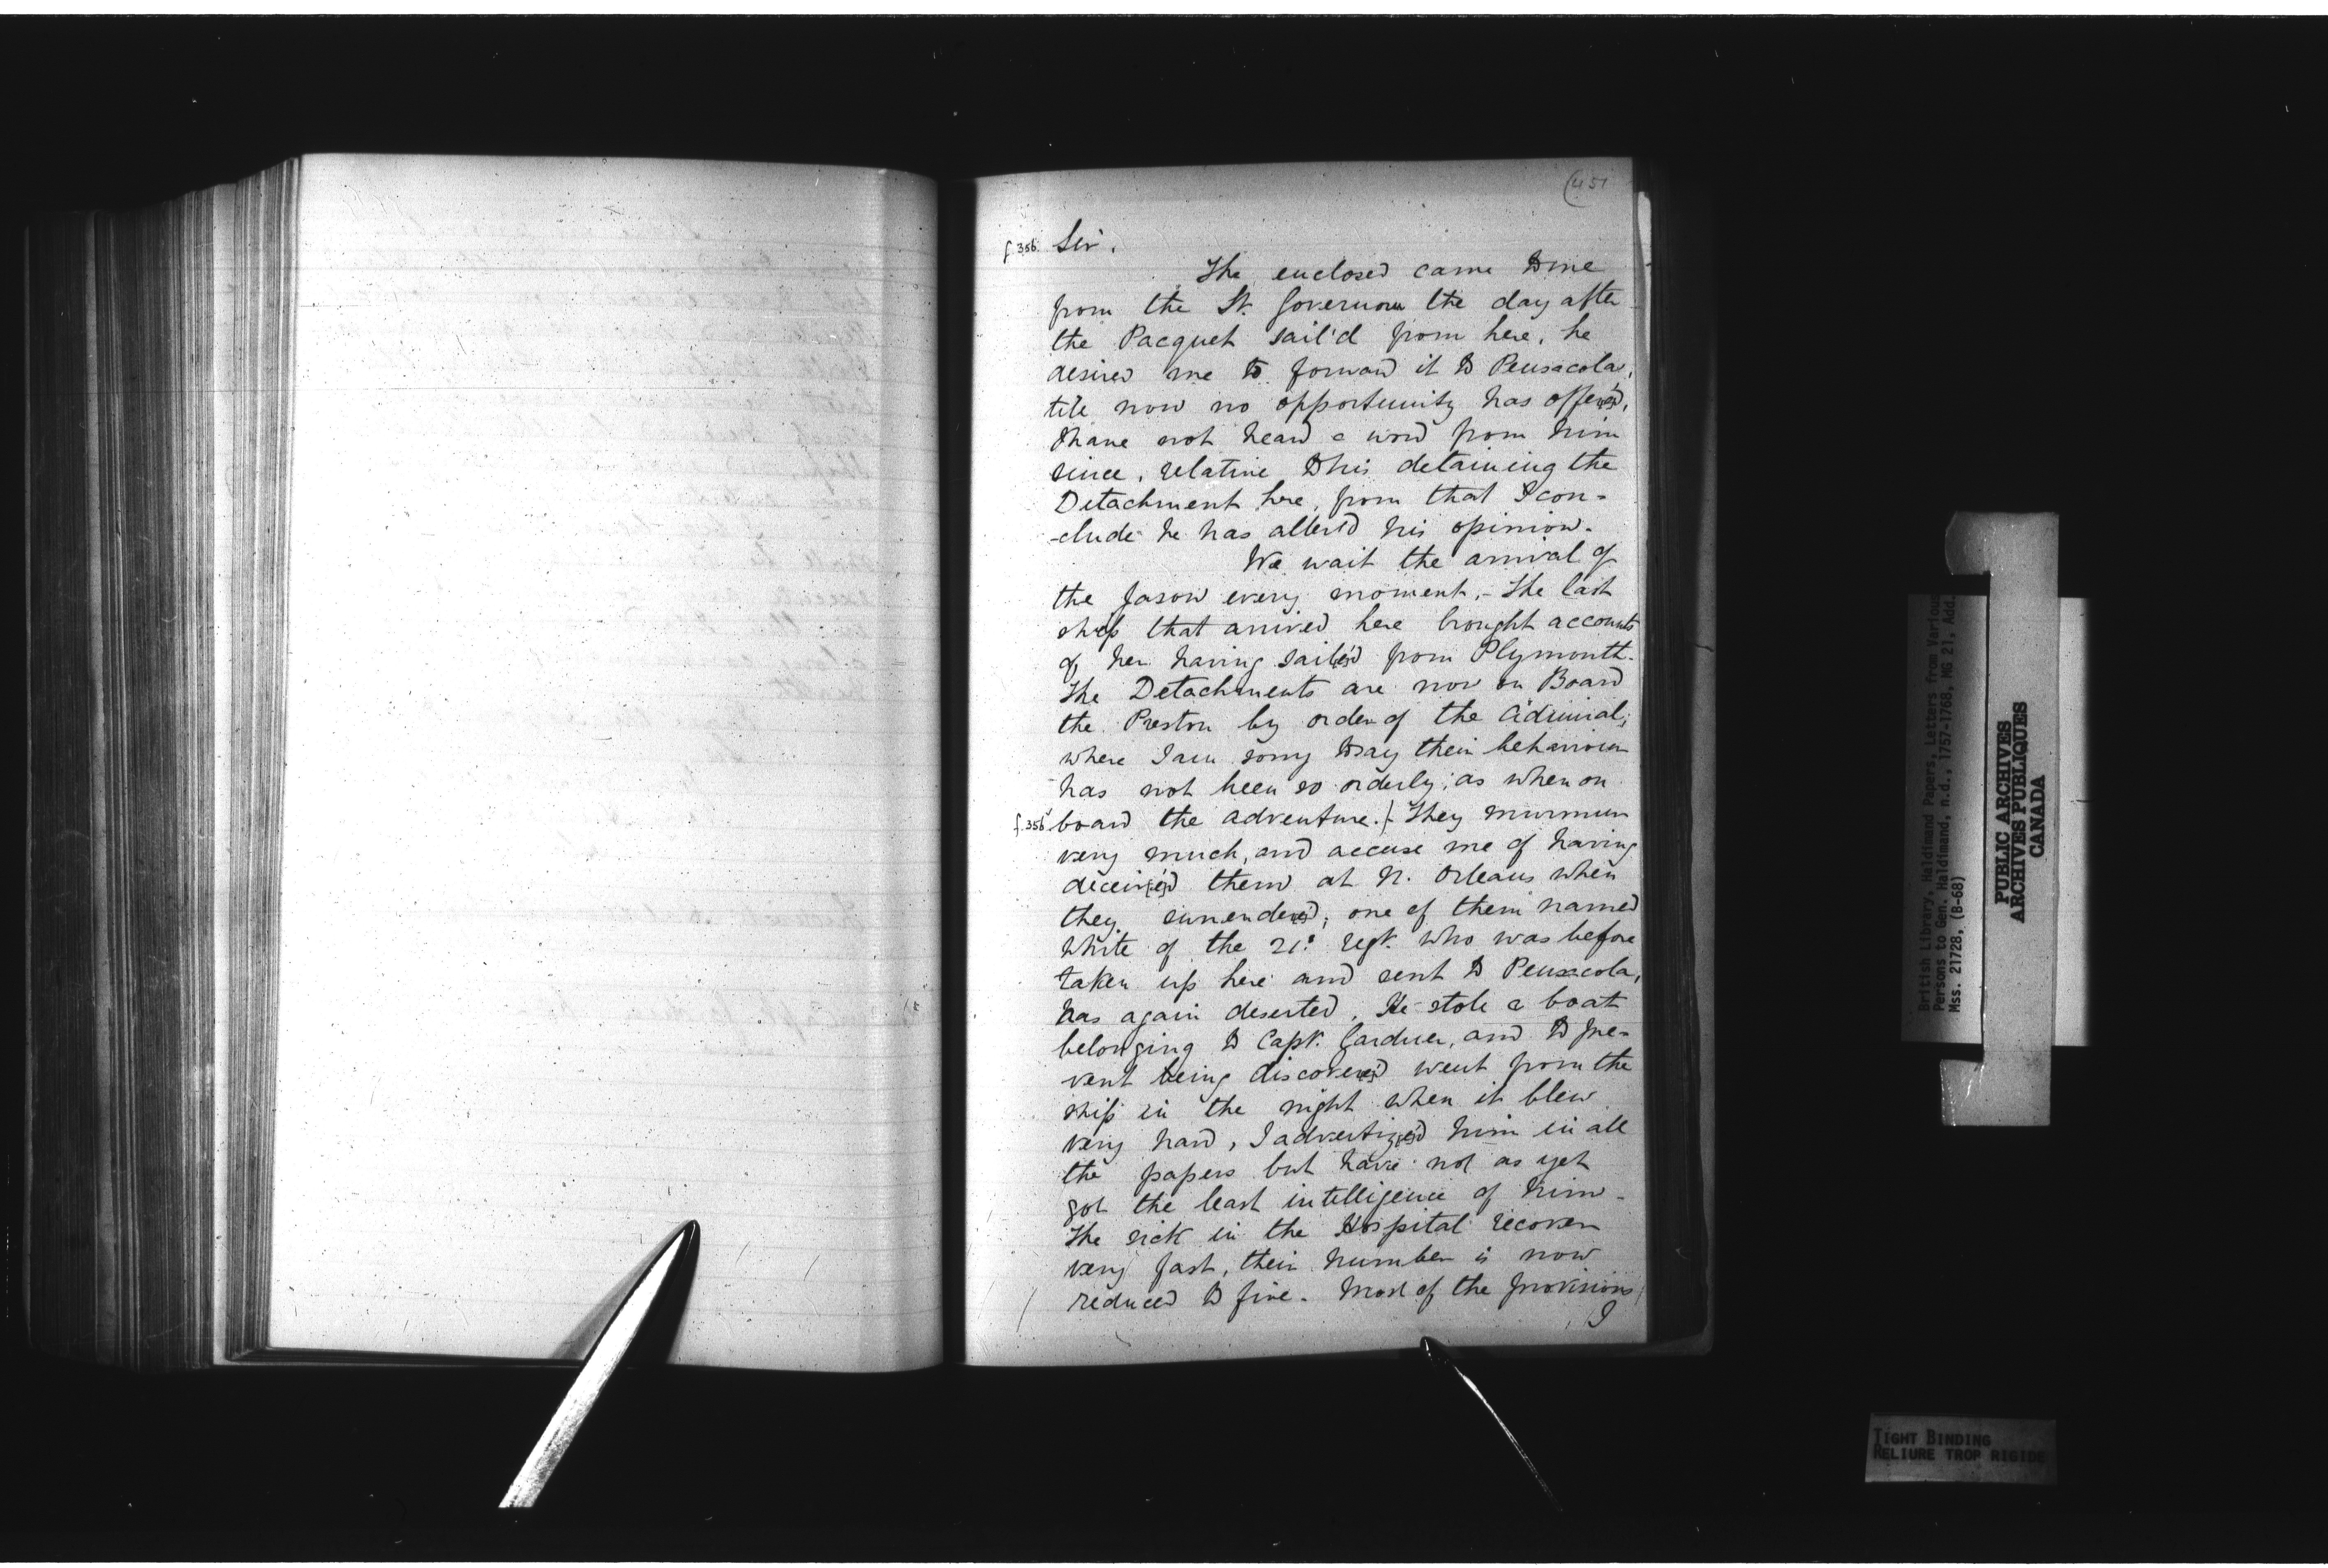 (451
f.356. Sir.
The enclosed came to me
from the Lt. Governour the day after
the Pacquet sail'd from here, he
desired me to forward it to Pensacola,
till now no opportunity has offer'd,
I have not heard a word from him
since, relative to his detaining the
Detachment here, from that I con-
-clude he has alter'd his opinion.
We wait the arrival of
the Jason every moment, - The last
ship that arrived here brought accounts
of her having sail'd from Plymouth.
The Detachments are now on Board
the Preston by order of the Admiral,
where I am sorry to say their behaviour
has not been so orderly, as when on
f.356 board the adventure. They murmur
very much, and accuse me of having
deceiv'd them at N. Orleans when
they surender'd; one of them named
White of the 21st regt. who was before
taken up here and sent to Pensacola,
has again deserted. He stole a boat
belonging to Capt. Gardner, and to pre-
vent being discover'd went from the
ship in the night when it blew
very hard, I advertiz'd him in all
the papers but have not as yet
got the least intelligence of him.
The sick in the Hospital recover
very fast, their number is now
reduced to five. Most of the provisions
I
British Library, Haldimand Papers, Letters from Various
Persons to Gen. Haldimand, n.d., 1757-1768, MG 21, Add.
Mss. 21728, (B-68)
PUBLIC ARCHIVES
ARCHIVES PUBLIQUES
CANADA
TIGHT BINDING
RELIURE TROP RIGIDE